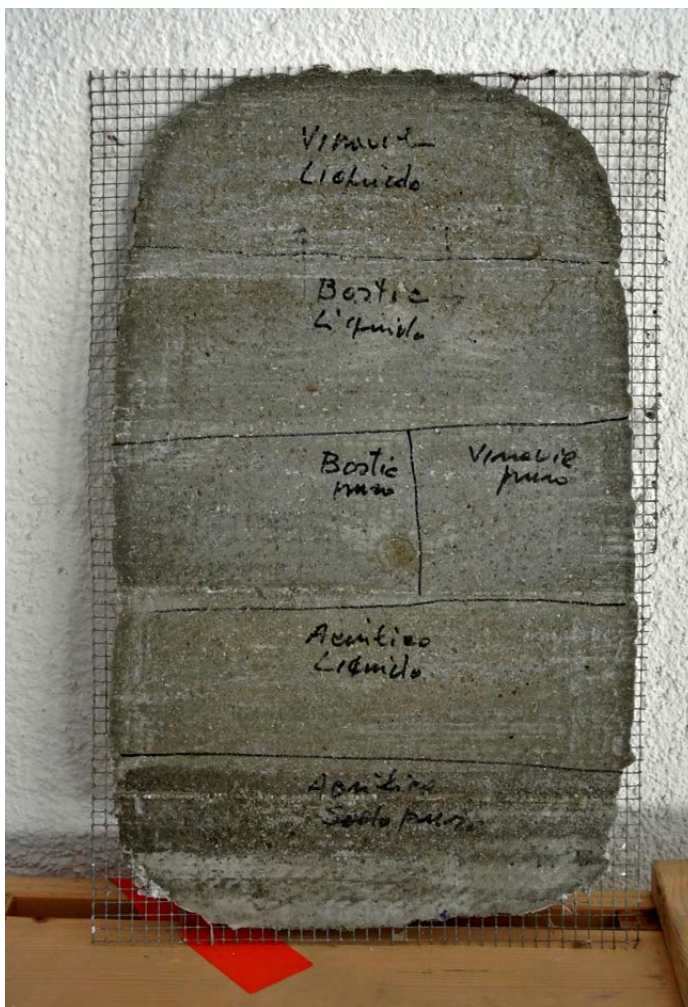 Vinavil
Liquido
Bostic
Liquido
Bostic
puro
Vinavil
puro
Acrilico
Liquido
Acrilico
puro